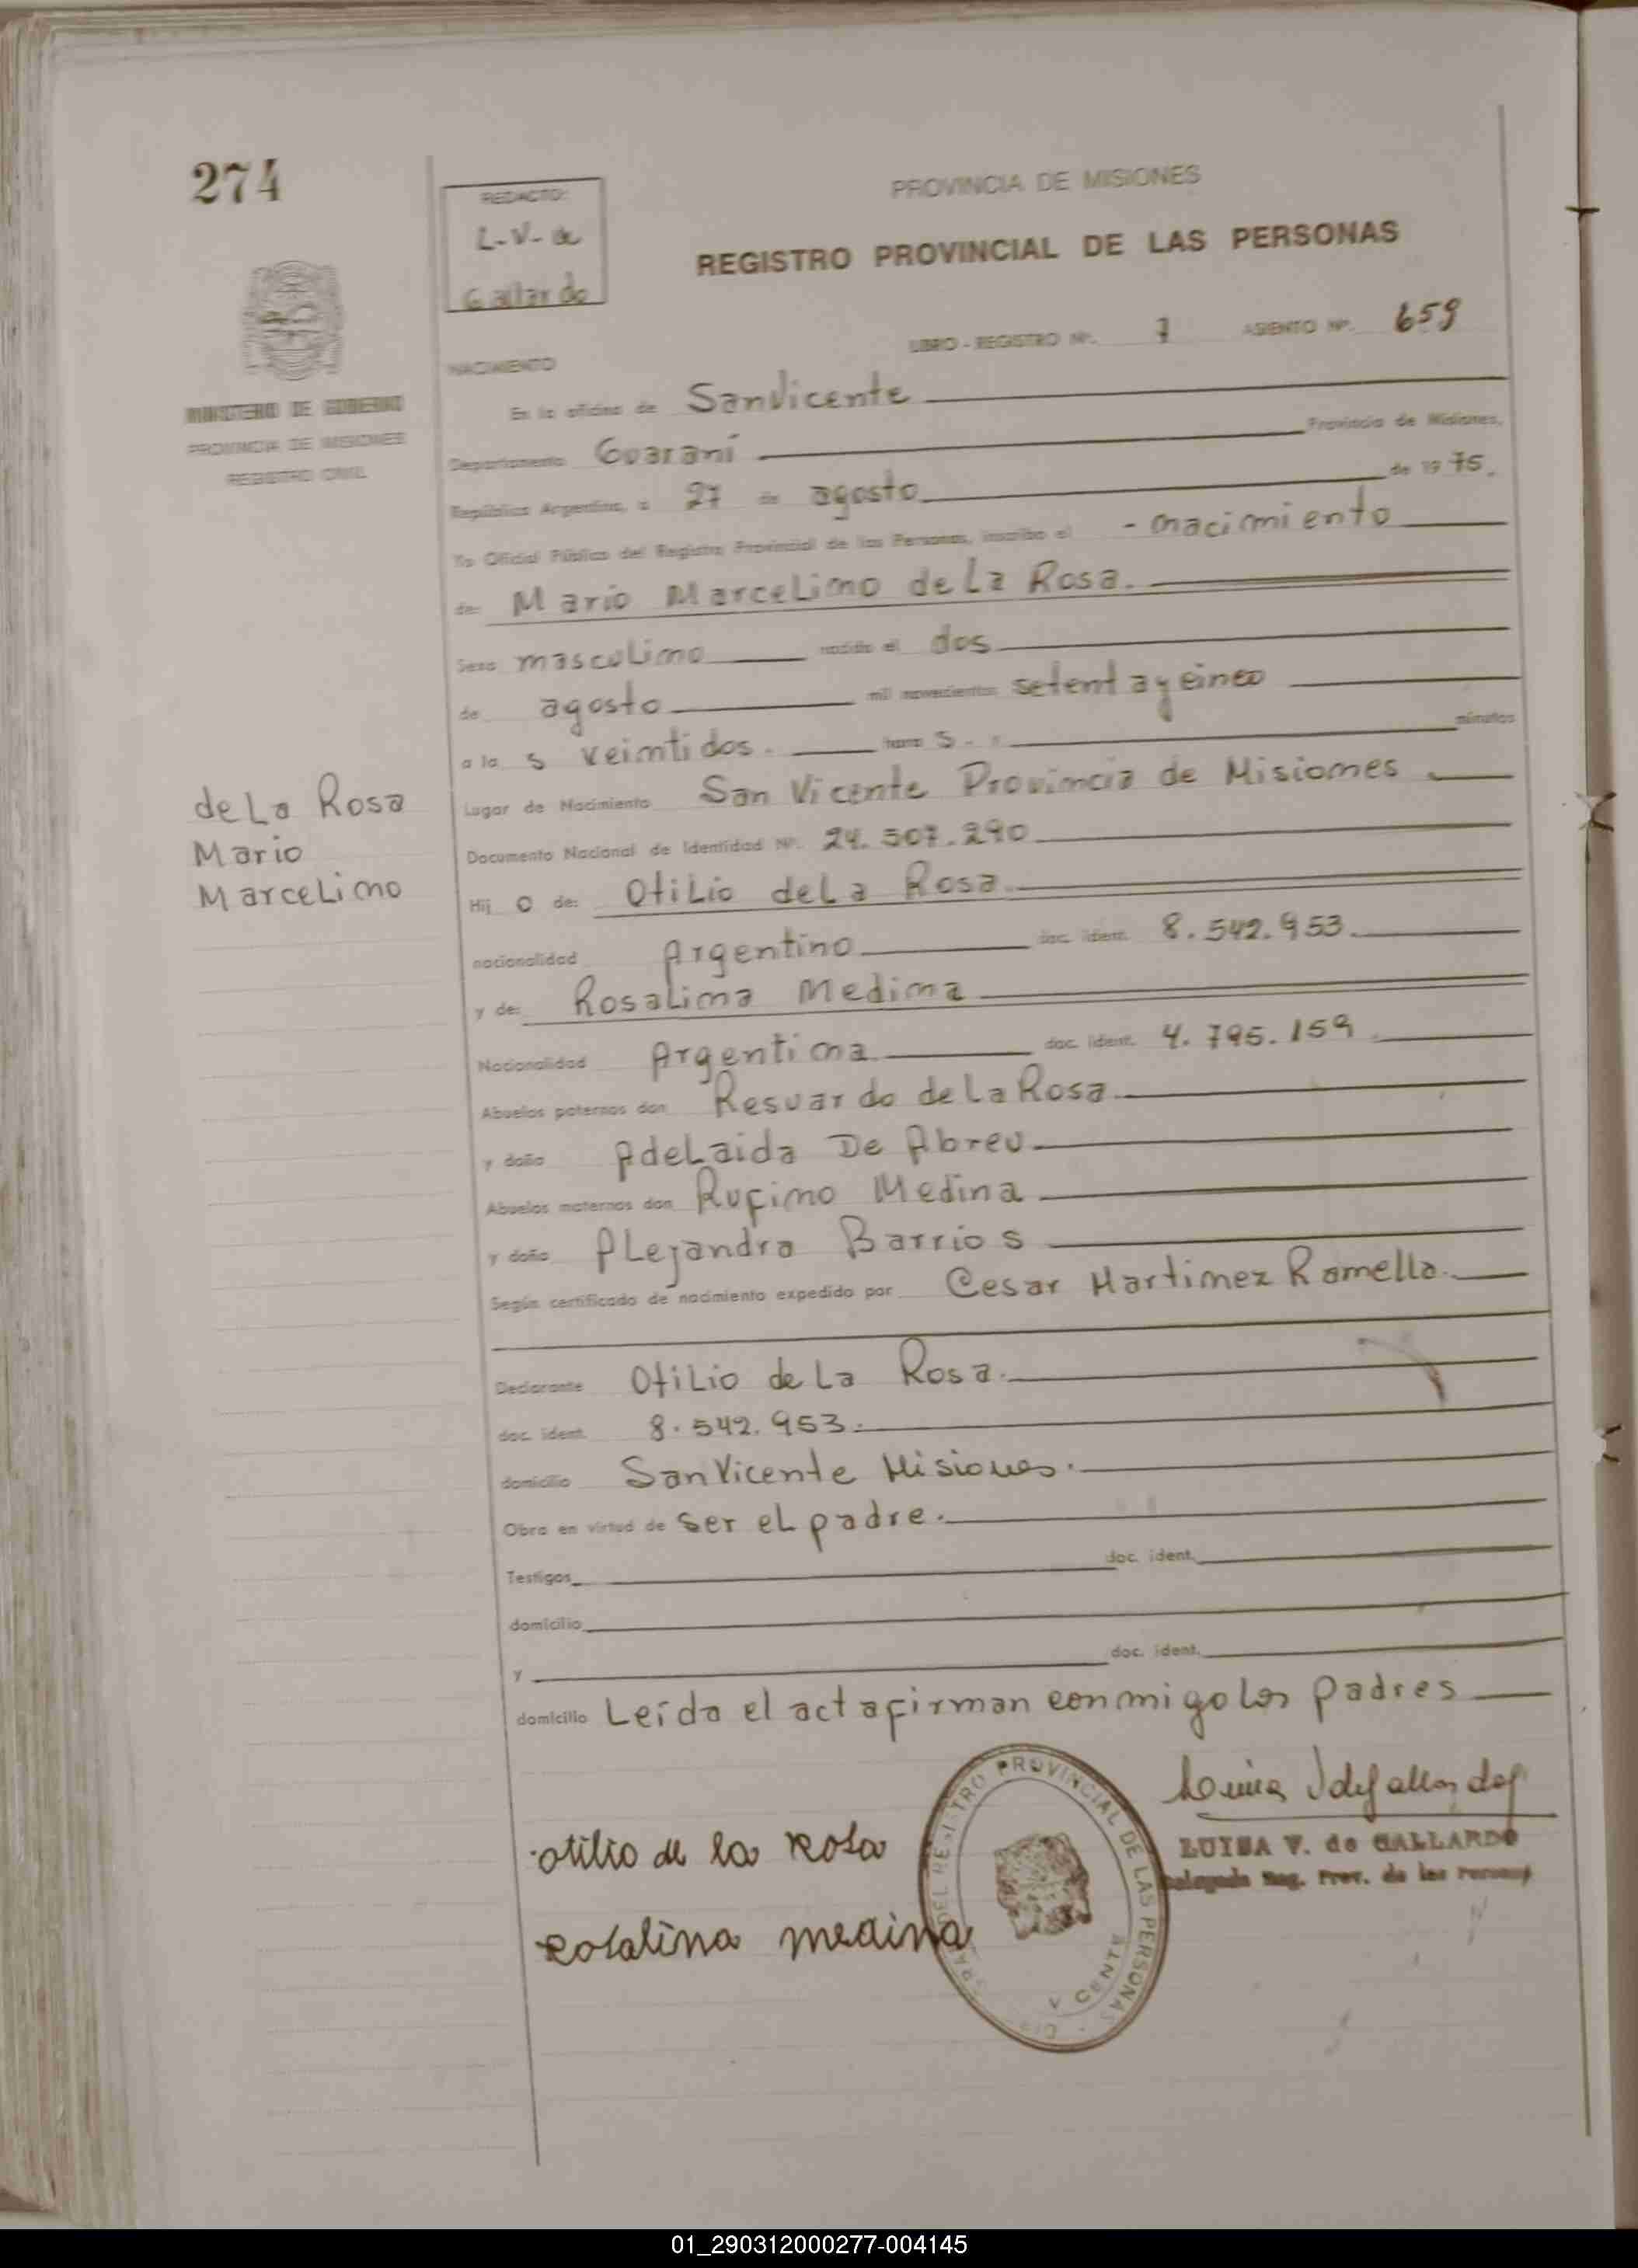 274
REDACTO:
L-V- de
Gallardo
PROVINCIA DE MISIONES
REGISTRO PROVINCIAL DE LAS PERSONAS
LIBRO - REGISTRO Nº. 1 ASIENTO Nº. 659
MINISTERIO DE GOBIERNO
PROVINCIA DE MISIONES
REGISTRO CIVIL
NACIMIENTO
En la oficina de San Vicente
Departamento Guaraní Provincia de Misiones,
República Argentina, a 27 de agosto de 1975.
Yo Oficial Público del Registro Provincial de las Personas, inscribo el - nacimiento
de: Mario Marcelino de La Rosa.
Sexo masculino nacido el dos
de agosto mil novecientos setenta y cinco
a la s veintidos. hora s. minutos
Lugar de Nacimiento San Vicente Provincia de Misiones
Documento Nacional de Identidad Nº. 24.507.290
Hij o de: Otilio de La Rosa.
nacionalidad Argentino doc. ident. 8.542.953.
y de: Rosalina Medina
Nacionalidad Argentina doc. ident. 4.795.159
Abuelos paternos don Resuardo de La Rosa
y doña Adelaida De Abreu
Abuelos maternos don Rufino Medina
y doña Alejandra Barrios
Según certificado de nacimiento expedido por Cesar Martinez Ramella.
Declarante Otilio de La Rosa.
doc. ident. 8.542.953.
domicilio San Vicente Misiones.
Obra en virtud de ser el padre.
Testigos doc. ident.
domicilio
y doc. ident.
domicilio Leída el acta firman conmigo los padres
de La Rosa
Mario
Marcelino
otilio de la rosa
rosalina medina
REGISTRO PROVINCIAL DE LAS PERSONAS
LUISA V. de GALLARDO
Delegada Reg. Prov. de las Personas
01_290312000277-004145